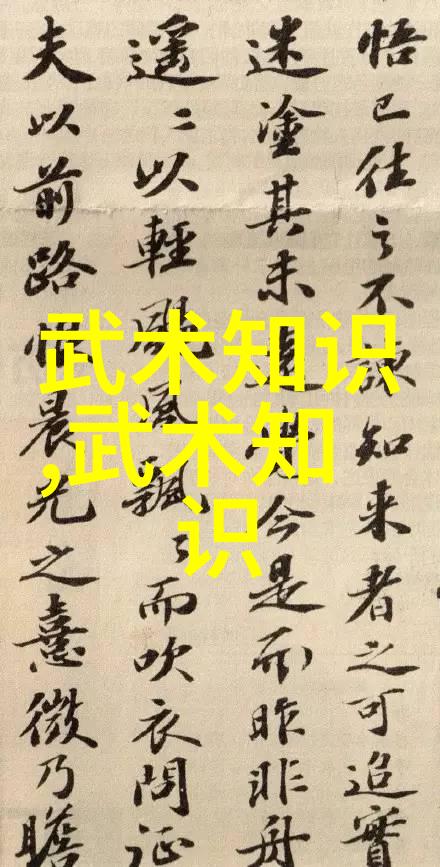 悟已往之不諫知来者之可追實
迷塗其未遠覺今是而昨非舟
遥〻以輕颺風飄〻而吹衣問征
夫以前路恨晨光之熹微乃瞻
武术知识
,武术知
识